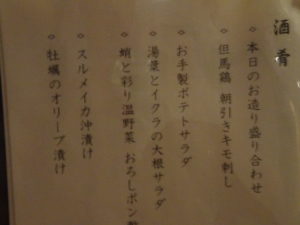 酒肴
◇ 本日のお造り盛り合わせ
◇ 但馬鶏 朝引きキモ刺し
◇ お手製ポテトサラダ
◇ 湯葉とイクラの大根サラダ
◇ 蛸と彩り温野菜 おろしポン酢
◇ スルメイカ沖漬け
◇ 牡蠣のオリーブ漬け